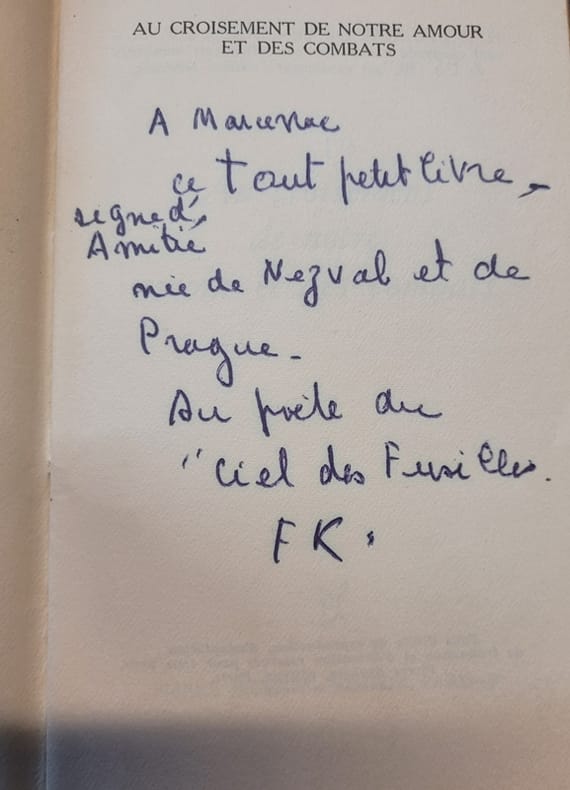 AU CROISEMENT DE NOTRE AMOUR
ET DES COMBATS
A Marcenac
ce tout petit livre,
signe d'
Amitié
née de Nezval et de
Prague -
Au poète du
"Ciel des Fusillés.
FK.